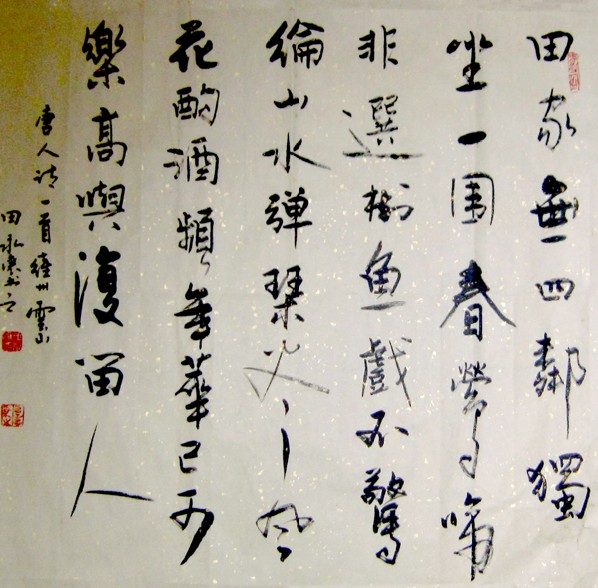 田家無四鄰獨
坐一園春鶯啼
非選樹魚戲不驚
綸山水彈琴盡風
花酌酒頻年華已可
樂高興復留人
唐人詩一首 州雲山
田永